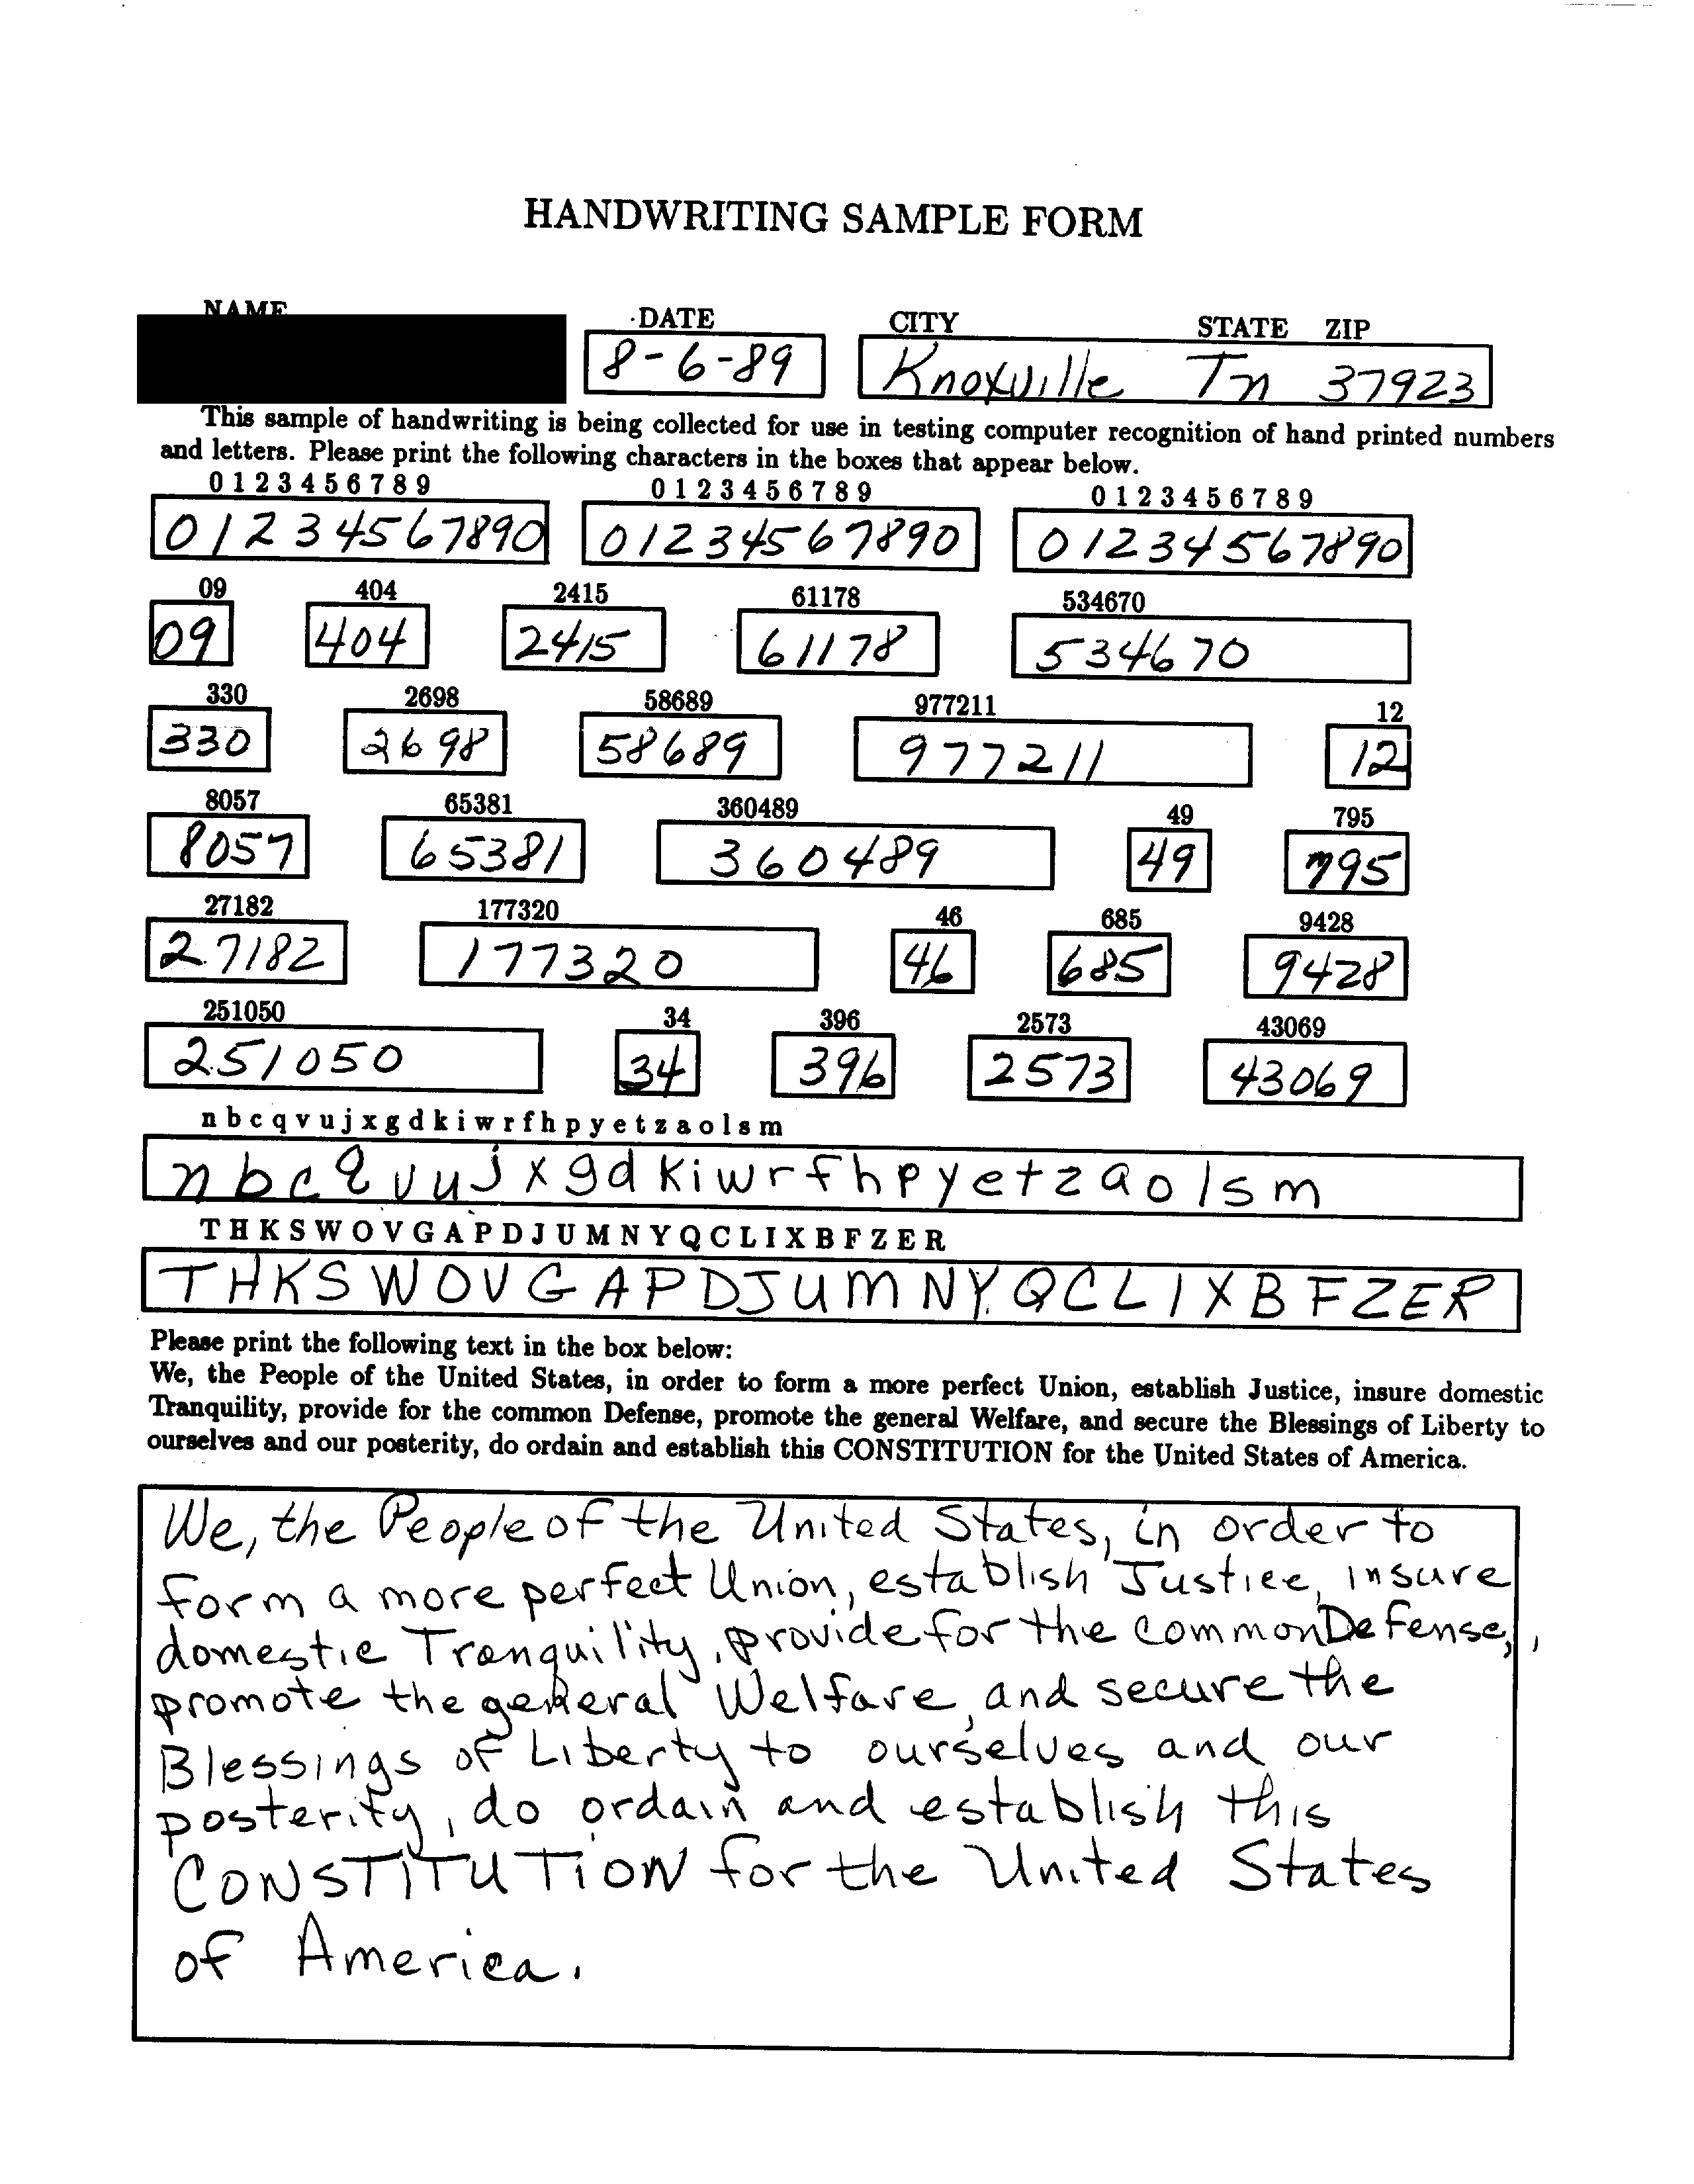 HANDWRITING SAMPLE FORM
NAME DATE CITY STATE ZIP
8-6-89 Knoxville Tn 37923
This sample of handwriting is being collected for use in testing computer recognition of hand printed numbers
and letters. Please print the following characters in the boxes that appear below.
0 1 2 3 4 5 6 7 8 9 0 1 2 3 4 5 6 7 8 9 0 1 2 3 4 5 6 7 8 9
01234567890 01234567890 01234567890
09 404 2415 61178 534670
09 404 2415 61178 534670
330 2698 58689 977211 12
330 2698 58689 977211 12
8057 65381 360489 49 795
8057 65381 360489 49 795
27182 177320 46 685 9428
27182 177320 46 685 9428
251050 34 396 2573 43069
251050 34 396 2573 43069
n b c q v u j x g d k i w r f h p y e t z a o l s m
n b c q v u j x g d k i w r f h p y e t z a o l s m
T H K S W O V G A P D J U M N Y Q C L I X B F Z E R
T H K S W O V G A P D J U M N Y Q C L I X B F Z E R
Please print the following text in the box below:
We, the People of the United States, in order to form a more perfect Union, establish Justice, insure domestic
Tranquility, provide for the common Defense, promote the general Welfare, and secure the Blessings of Liberty to
ourselves and our posterity, do ordain and establish this CONSTITUTION for the United States of America.
We, the People of the United States, in order to
form a more perfect Union, establish Justice, insure
domestic Tranquility, provide for the common Defense,,
promote the general Welfare, and secure the
Blessings of Liberty to ourselves and our
posterity, do ordain and establish this
CONSTITUTION for the United States
of America.